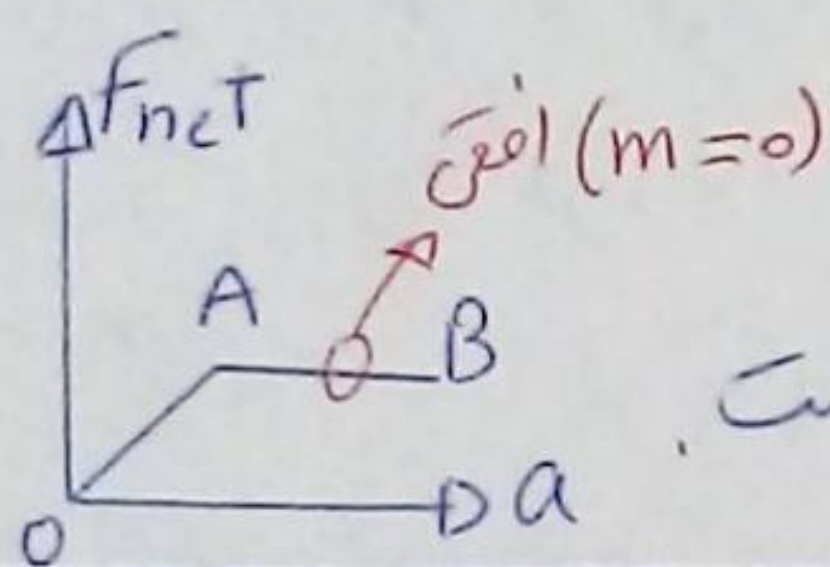 Fnet
افقی (m=0)
A
B
ست.
O
a